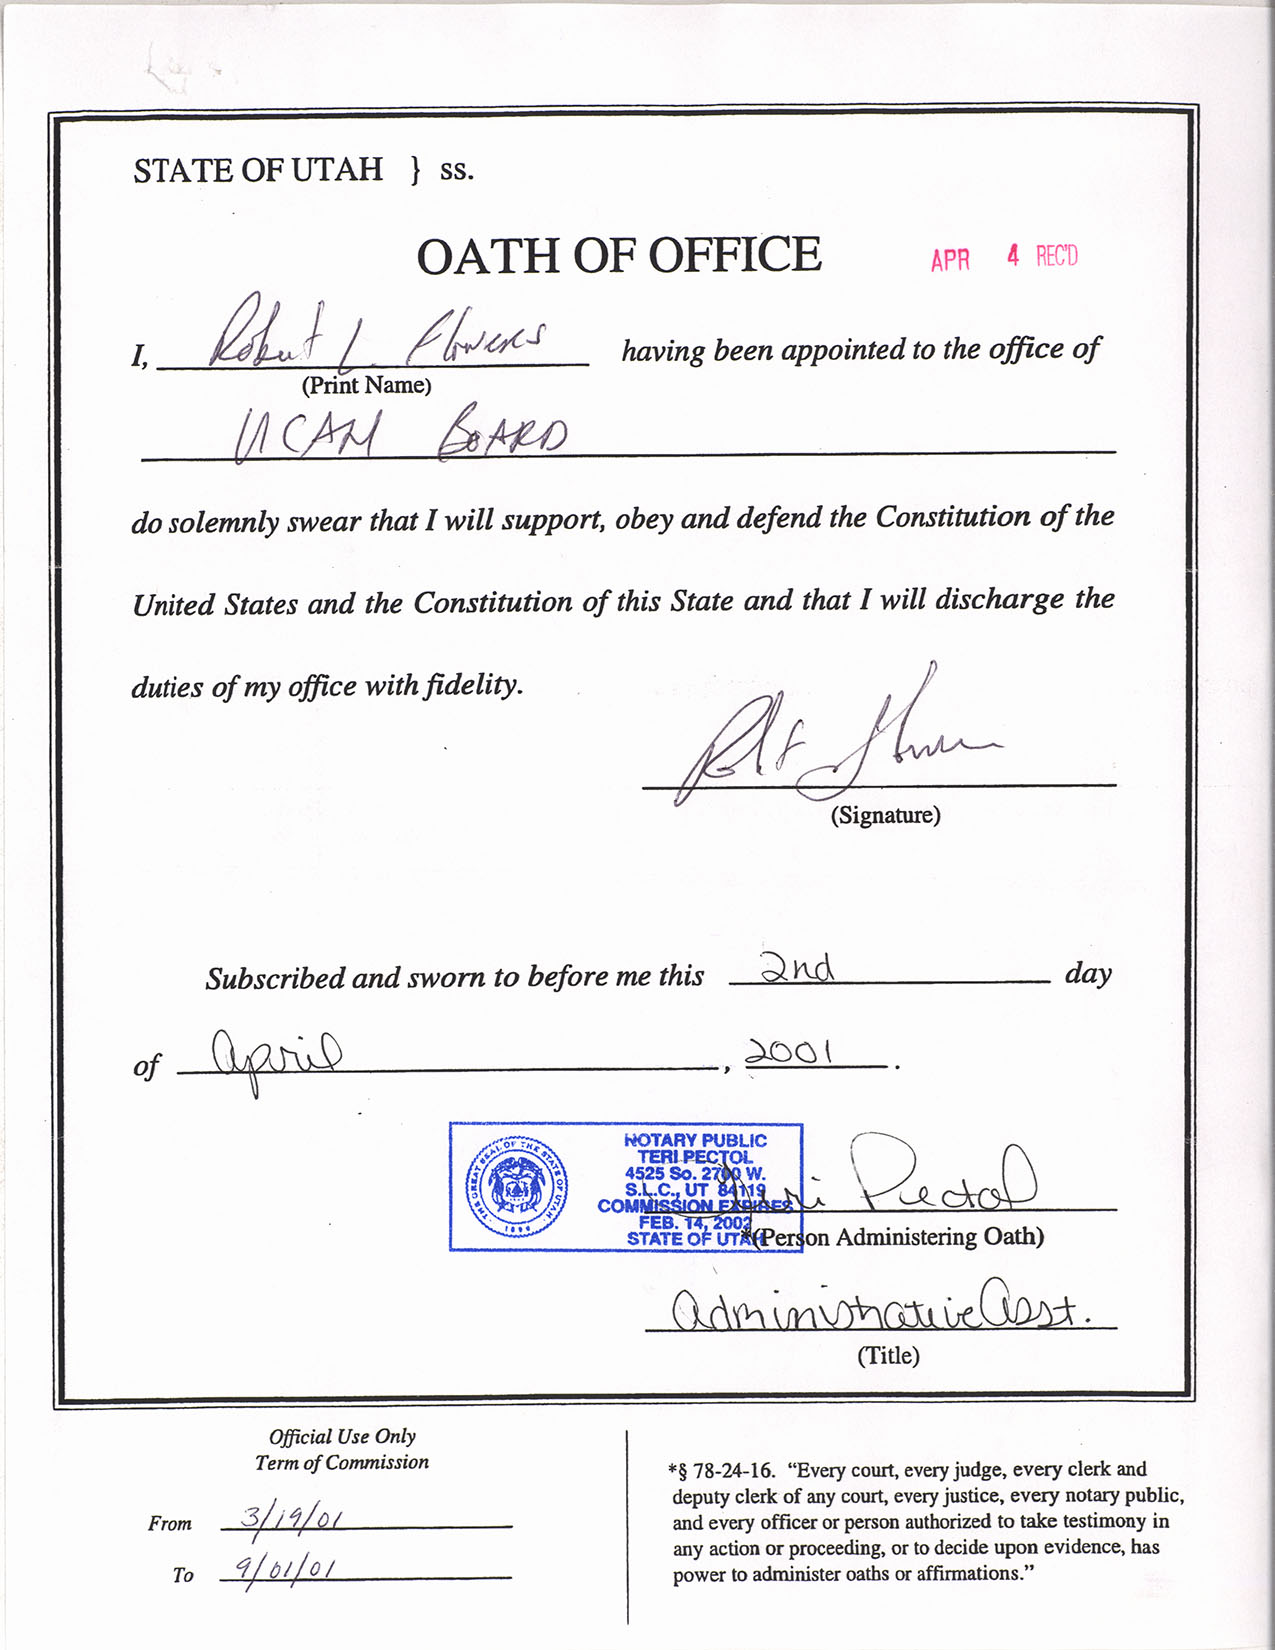 STATE OF UTAH } ss.
OATH OF OFFICE
APR 4 REC'D
I, Robert L. Flowers having been appointed to the office of
(Print Name)
UCAM BOARD
do solemnly swear that I will support, obey and defend the Constitution of the
United States and the Constitution of this State and that I will discharge the
duties of my office with fidelity.
Robt Flowers
(Signature)
Subscribed and sworn to before me this 2nd day
of April, 2001.
THE GREAT SEAL OF THE STATE OF UTAH
1896
NOTARY PUBLIC
TERI PECTOL
4525 So. 2700 W.
S.L.C., UT 84119
COMMISSION EXPIRES
FEB. 14, 2002
STATE OF UTAH
Teri Pectol
*(Person Administering Oath)
Administrative Asst.
(Title)
Official Use Only
Term of Commission
From 3/19/01
To 9/01/01
*§ 78-24-16. “Every court, every judge, every clerk and
deputy clerk of any court, every justice, every notary public,
and every officer or person authorized to take testimony in
any action or proceeding, or to decide upon evidence, has
power to administer oaths or affirmations.”